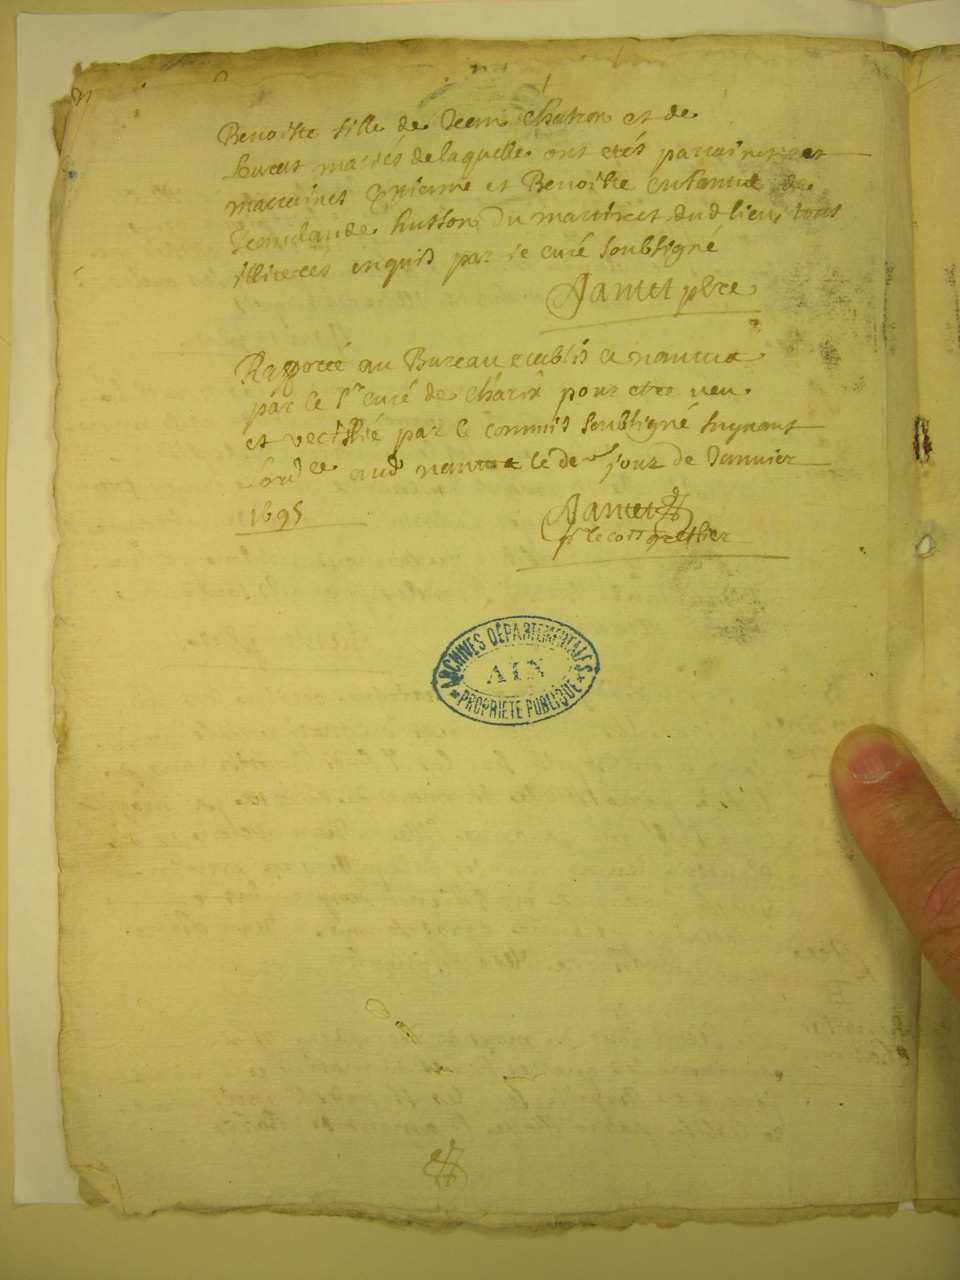 Benoiste fille de Jean Chatron et de
mariés de laquelle ont etés parrains et
marraines Etienne et Benoiste enfants de
Jeanclaude husson du martinet dud lieu tous
illiterés enquis par je curé soubsigné
Jantet pbre
Raporté au Bureau establis a nantua
par le Sr curé de Charix pour etre veu
et veriffié par le commis soubsigné suyvant
aud nantua le jour de Janvier
1695
Jantet
greffier
ARCHIVES DÉPARTEMENTALES
AIN
PROPRIÉTÉ PUBLIQUE